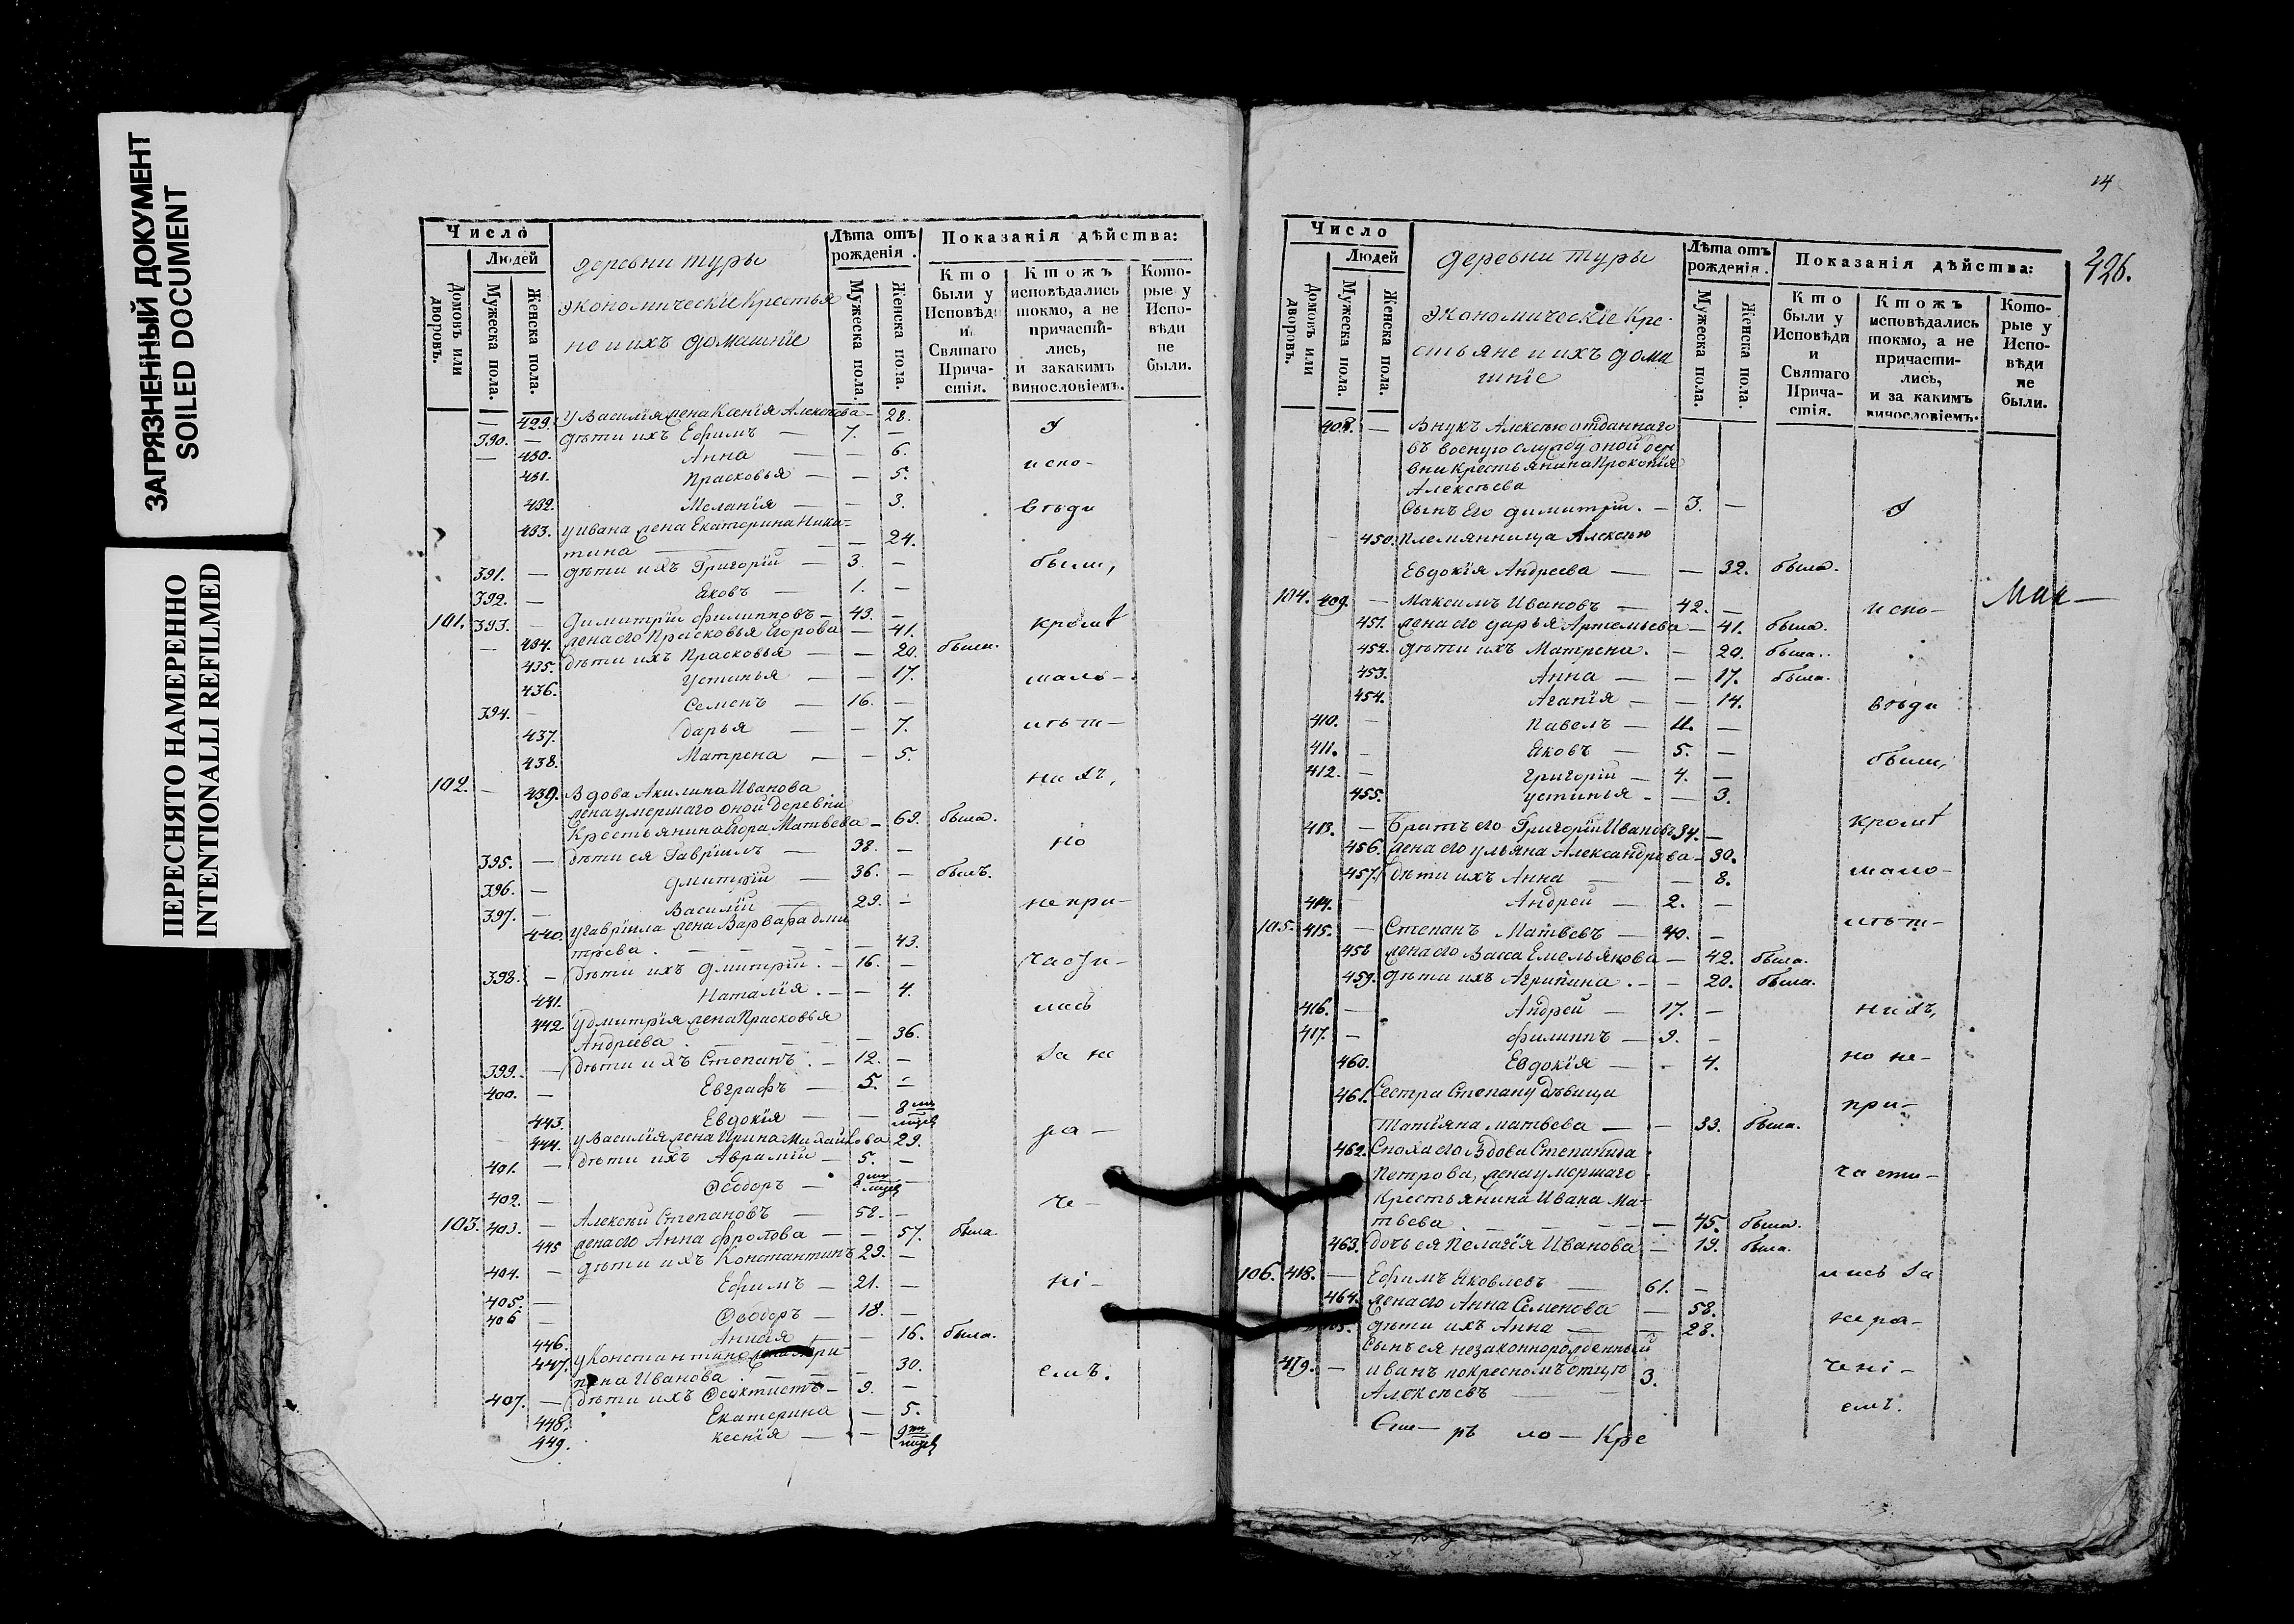 ЗАГРЯЗНЕННЫЙ ДОКУМЕНТ
SOILED DOCUMENT
ПЕРЕСНЯТО НАМЕРЕННО
INTENTIONALLI REFILMED
Число
Людей
Домовъ или дворовъ.
Мужеска пола.
Женска пола.
деревни туры
экономическіе Крестья
не и ихъ домашніе
Лѣта отъ рожденія.
Мужеска пола.
Женска пола.
Показанія дѣйства:
Кто были у Исповѣди и Святаго Прича-стія.
Ктожъ исповѣдались токмо, а не причасти-лись, и закакимъ винословіемъ.
Кото-рые у Испо-вѣди не были.
— 429. у Василія жена Ксенія Алексѣева — 28.
390. — дѣти ихъ Ефимъ — 7. —
— 430. Анна — — 6.
431. Прасковья — — 5.
испо-
432. Меланія — — 3.
вѣди
433. у Ивана жена Екатерина Ники-
тина — — 24.
391. — дѣти ихъ Григорій — 3. —
были,
392. — Яковъ — 1. —
101. 393. — Димитрій Филипповъ — 43. —
кромѣ
— 434. жена его Прасковья Егорова — 41.
435. дѣти ихъ Прасковья — — 20. была.
436. Устинья — — 17.
мало-
394. — Семенъ — 16. —
437. дарья — — 7.
лѣт-
438. Матрена — — 5.
нихъ,
102. — 439. Вдова Акилина Иванова
жена умершаго оной деревни
Крестьянина Егора Матвеева — 69. была.
но
395. — дѣти ея Гавріилъ — 38. —
396. — Дмитрій — 36. — былъ.
397. — Василій — 29. —
непри-
440. у Гавріила жена Варвара дми
трева. — — 43.
398. — дѣти ихъ Дмитрій. — 16. —
части-
441. Наталія. — — 4.
лись
442 у дмитрія жена Прасковья
Андреева — — 36.
399. — дѣти ихъ Степанъ. — 12. —
за не
400. — Евграфъ — 5. —
443. Евдокія — — 8
444. у Василія жена Ирина Михайлова 29.
ра-
401. — дѣти ихъ Аврамій — 5. —
402. — Ѳеодоръ — 8 —
че-
103. 403. — Алексѣй Степановъ — 58. —
445 жена его Анна Фролова — — 57. была.
404. — дѣти ихъ Константинъ 29. —
405. — Ефимъ — 21. —
ні-
406 — Ѳеодоръ — 18. —
446. — 16. была.
447. у Константина жена Агри-
пена Иванова. — — 30.
емъ.
407. — дѣти ихъ Ѳеоктистъ — 9. —
448. Екатерина — 5.
449. Ксенія — — 9
14
426.
Число
Людей
Домовъ или дворовъ.
Мужеска пола.
Женска пола.
деревни туры
экономическіе Кре-
стьяне и ихъ дома
шніе
Лѣта отъ рожденія.
Мужеска пола.
Женска пола.
Показанія дѣйства:
Кто были у Исповѣди и Святаго Прича-стія.
Ктожъ исповѣдались токмо, а не причасти-лись, и за какимъ винословіемъ.
Кото-рые у Испо-вѣди не были.
408. — Внукъ Алексѣю отданнаго
въ военую службу оной дер
вни крестьянина Прокопія
Алексѣева
Сынъ его димитрій. — 3. —
450. Племянница Алексѣю
Евдокія Андреева — — 32. была.
104. 409. — Максимъ Ивановъ — 42. —
испо-
451. жена его дарья Артемьева — 41. была.
452. дѣти ихъ Матрена. — 20. была.
453. Анна — — 17. была.
454. Агапія — — 14.
вѣди
410. — Павелъ — 11. —
411. — Яковъ — 5. —
были,
412. — Григорій — 4. —
455. Устинья. — 3.
кромѣ
413. — Братъ его Григорій Ивановъ 34. —
456. жена его ульяна Александрова — 30.
457. дѣти ихъ Анна — — 8.
мало-
414. — Андрей — 2. —
лѣт-
105. 415. — Степанъ Матвеевъ — 40. —
458 жена его Васса Емельянова — 42. была.
459. дѣти ихъ Агрипина. — — 20. была.
416. — Андрей — 17. —
нихъ,
417. — Филиппъ — 9. —
460. Евдокія — — 4.
но не-
461. Сестра Степану дѣвица
при-
Татіяна Матвеева — — 33. была.
462. Сноха его Вдова Степанида
Петрова, жена умершаго
части-
Крестьянина Ивана Ма-
твеева — — 45. была.
463. дочь ея Пелагія Иванова — 19. была.
106. 418. — Ефимъ Яковлевъ — 61. —
лись за
464. жена его Анна Семенова — 58.
дѣти ихъ Анна — — 28.
нера-
Сынъ ея незаконнорожденный
419. — Иванъ по кресномъ отцу 3.
чені-
Алексѣевъ
емъ.